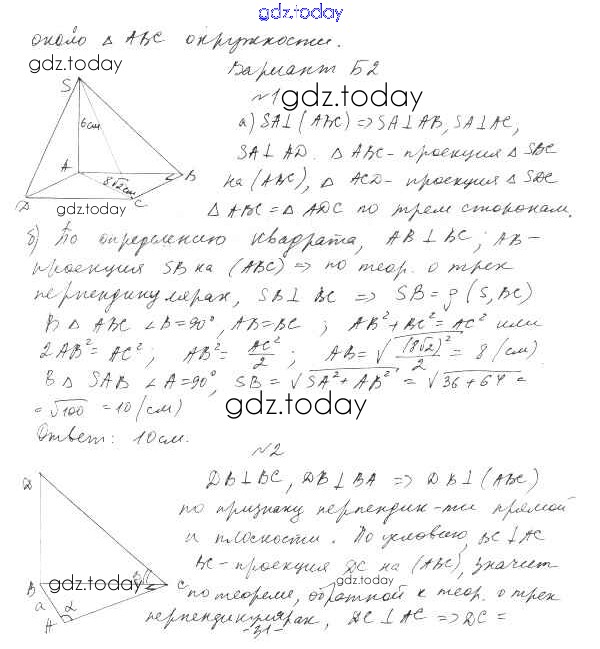 gdz.today
около △ ABC окружности.
gdz.today
Вариант Б2
№1
gdz.today
а) SA⊥(ABC) ⇒ SA⊥AB, SA⊥AC,
SA⊥AD. △ ABC - проекция △ SBC
на (ABC), △ ACD - проекция △ SDC
△ ABC = △ ADC по трем сторонам.
S
6см
A
B
8√2см
D
C
gdz.today
б) По определению квадрата, AB⊥BC; AB-
проекция SB на (ABC) ⇒ по теор. о трех
перпендикулярах, SB⊥BC ⇒ SB = ρ(S, BC)
В △ ABC ∠B=90°, AB=BC ; AB²+BC²=AC² или
2AB²=AC² ; AB²= AC²/2 ; AB=√((8√2)²/2) = 8 (см)
В △ SAB ∠A=90°, SB=√(SA²+AB²) = √(36+64) =
=√100 = 10 (см)
gdz.today
Ответ: 10см.
№2
DB⊥BC, DB⊥BA ⇒ DB⊥(ABC)
по признаку перпендик-ти прямой
и плоскости. По условию, BC⊥AC
BC - проекция DC на (ABC), значит
gdz.today
по теореме, обратной к теор. о трех
перпендикулярах, DC⊥AC ⇒ DC =
D
B
gdz.today
C
a
α
A
-31-